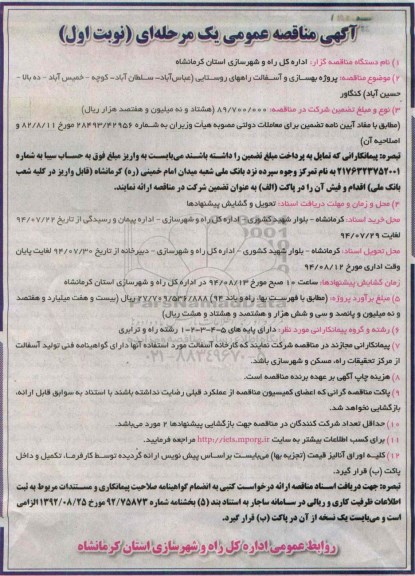 آگهی مناقصه عمومی یک مرحله‌ای (نوبت اول)
۱) نام دستگاه مناقصه گزار: اداره کل راه و شهرسازی استان کرمانشاه
۲) موضوع مناقصه: پروژه بهسازی و آسفالت راههای روستایی (عباس‌آباد- سلطان آباد- کوچه - خمیس آباد - ده بالا -
حسین آباد) کنگاور
۳) نوع و مبلغ تضمین شرکت در مناقصه: ۸۹/۷۰۰/۰۰۰ (هشتاد و نه میلیون و هفتصد هزار ریال)
(مطابق با مفاد آیین نامه تضمین برای معاملات دولتی مصوبه هیأت وزیران به شماره ۲۸۴۹۳/۴۲۹۵۶ مورخ ۸۲/۸/۱۱ و
اصلاحیه آن)
تبصره: پیمانکارانی که تمایل به پرداخت مبلغ تضمین را داشته باشند می‌بایست به واریز مبلغ فوق به حساب سیبا به شماره
۲۱۷۶۳۲۳۷۵۲۰۰۱ به نام تمرکز وجوه سپرده نزد بانک ملی شعبه میدان امام خمینی (ره) کرمانشاه (قابل واریز در کلیه شعب
بانک ملی) اقدام و فیش آن را در پاکت (الف) به عنوان تضمین شرکت در مناقصه ارائه نمایند.
۴) محل و زمان و مهلت دریافت اسناد: تحویل و گشایش پیشنهادها
محل خرید اسناد: کرمانشاه - بلوار شهید کشوری - اداره کل راه و شهرسازی - اداره پیمان و رسیدگی از تاریخ ۹۴/۰۷/۲۲
لغایت ۹۴/۰۷/۲۹
محل تحویل اسناد: کرمانشاه - بلوار شهید کشوری - اداره کل راه و شهرسازی - دبیرخانه از تاریخ ۹۴/۰۷/۳۰ لغایت پایان
وقت اداری مورخ ۹۴/۰۸/۱۲
زمان گشایش پیشنهادها: ساعت ۱۰ صبح مورخ ۹۴/۰۸/۱۳ در اداره کل راه و شهرسازی استان کرمانشاه
۵) مبلغ برآورد پروژه: (مطابق با فهرست بها، راه و باند ۹۴) ۲۷/۷۰۹/۵۳۶/۸۸۸ ریال (بیست و هفت میلیارد و هفتصد و
نه میلیون و پانصد و سی و شش هزار و هشتصد و هشتاد و هشت ریال)
۶) رشته و گروه پیمانکارانی مورد نظر: دارای پایه های ۵-۴-۳-۲-۱ رشته راه و ترابری
۷) پیمانکارانی مجازند در مناقصه شرکت نمایند که کارخانه آسفالت مورد استفاده آنها دارای گواهینامه فنی تولید آسفالت
از مرکز تحقیقات راه، مسکن و شهرسازی باشد.
۸) هزینه چاپ آگهی بر عهده برنده مناقصه است.
۹) پاکت مناقصه گرانی که اعضای کمیسیون مناقصه از عملکرد قبلی رضایت نداشته باشند با استناد به سوابق قابل ارائه،
بازگشایی نخواهد شد.
۱۰) حداقل تعداد شرکت کنندگان در مناقصه جهت بازگشایی پیشنهادها ۲ مورد می‌باشد.
۱۱) برای کسب اطلاعات بیشتر به سایت http://iets.mporg.ir مراجعه فرمایید.
۱۲) کلیه اوراق آنالیز قیمت (تجزیه بها) می‌بایست براساس پیش نویس ارائه گردیده توسط کارفرما، تکمیل و داخل
پاکت (ب) قرار گیرد.
تبصره: جهت دریافت اسناد مناقصه ارائه درخواست کتبی به انضمام گواهینامه صلاحیت پیمانکاری و مستندات مربوط به ثبت
اطلاعات ظرفیت کاری و ریالی در سامانه ساجار به استناد بند (۵) بخشنامه شماره ۹۲/۷۵۸۷۳ مورخ ۱۳۹۲/۰۸/۲۵ الزامی
است و می‌بایست یک نسخه از آن در پاکت (ب) قرار گیرد.
روابط عمومی اداره کل راه و شهرسازی استان کرمانشاه